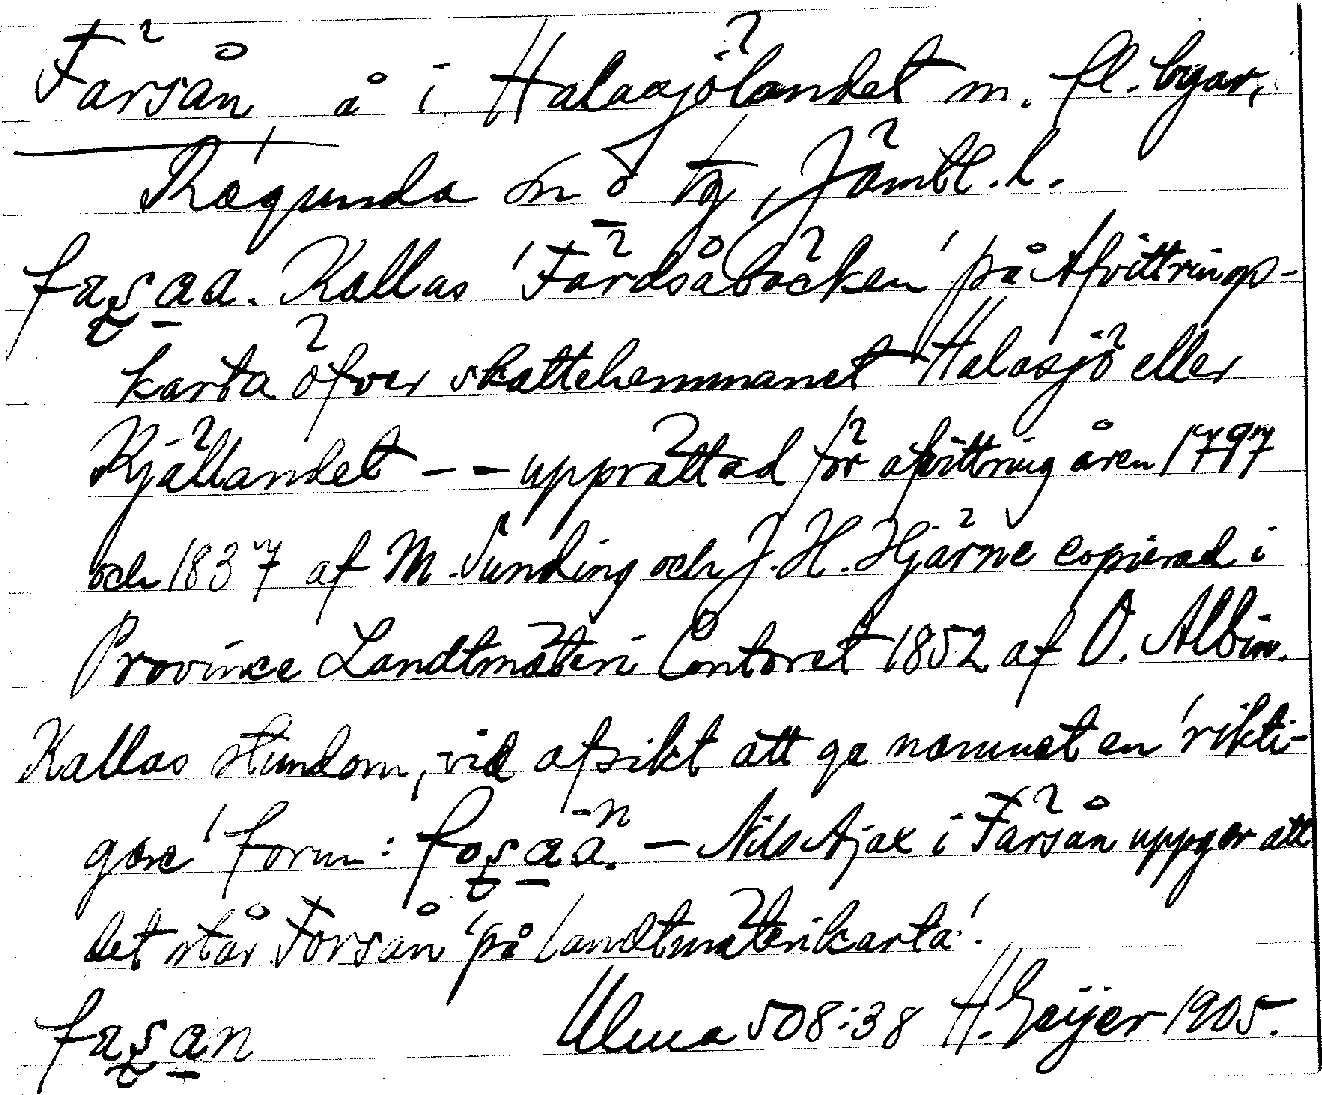 Färsån, å i Halasjölandet m. fl. byar,
Ragunda sn o tg, Jämtl. l.
Kallas 'Färdsåbäcken' på Afvittrings-
karta öfver skattehemmanet Halasjö eller
Kjällandet -- upprättad för afvittring åren 1797
och 1837 af M. Sunding och J. H. Hjärne copierad i
Province Landtmäteri Contoret 1852 af O. Albin.
Kallas stundom, vid afsikt att ge namnet en 'rikti-
gare' form: — Nils Ajax i Färsån uppger att
det står Forsån 'på landtmäterikarta'.
Ulma 508:38 H. Geijer 1905.